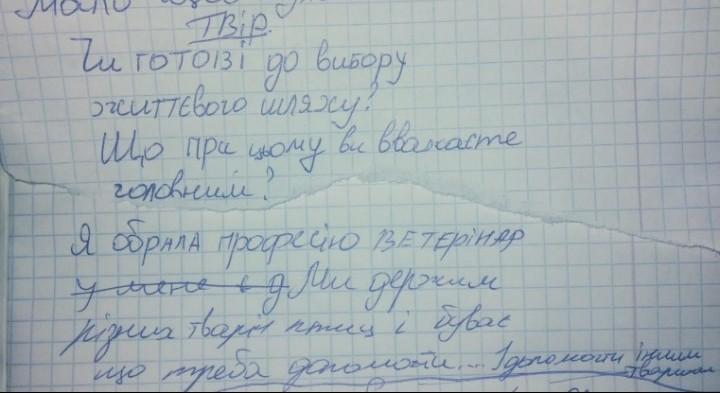 Твір.
Чи готові до вибору
життєвого шляху?
Що при цьому ви вважаєте
головним?
Я обрала професію ветерінар
у мене є д Ми держим
різних тварін птиц і буває
що треба допомогти... І допомогти іншим
тваринам